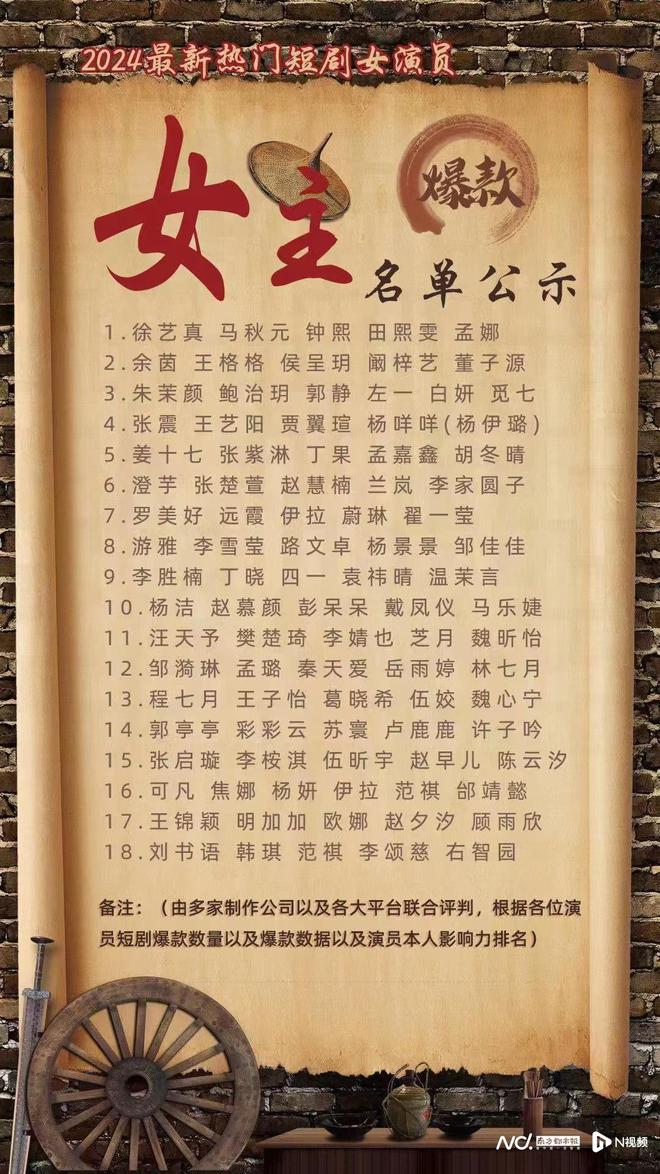 2024最新热门短剧女演员
女主
爆款
名单公示
1.徐艺真 马秋元 钟熙 田熙雯 孟娜
2.余茵 王格格 侯呈玥 阚梓艺 董子源
3.朱茉颜 鲍治玥 郭静 左一 白妍 觅七
4.张震 王艺阳 贾翼瑄 杨咩咩(杨伊璐)
5.姜十七 张紫淋 丁果 孟嘉鑫 胡冬晴
6.澄芋 张楚萱 赵慧楠 兰岚 李家圆子
7.罗美好 远霞 伊拉 蔚琳 翟一莹
8.游雅 李雪莹 路文卓 杨景景 邹佳佳
9.李胜楠 丁晓 四一 袁祎晴 温茉言
10.杨洁 赵慕颜 彭呆呆 戴凤仪 马乐婕
11.汪天予 樊楚琦 李婧也 芝月 魏昕怡
12.邹漪琳 孟璐 秦天爱 岳雨婷 林七月
13.程七月 王子怡 葛晓希 伍姣 魏心宁
14.郭亭亭 彩彩云 苏寰 卢鹿鹿 许子吟
15.张启璇 李桉淇 伍昕宇 赵早儿 陈云汐
16.可凡 焦娜 杨妍 伊拉 范祺 邰靖懿
17.王锦颖 明加加 欧娜 赵夕汐 顾雨欣
18.刘书语 韩琪 范祺 李颂慈 右智园
备注：（由多家制作公司以及各大平台联合评判，根据各位演
员短剧爆款数量以及爆款数据以及演员本人影响力排名）
南方都市报 N视频